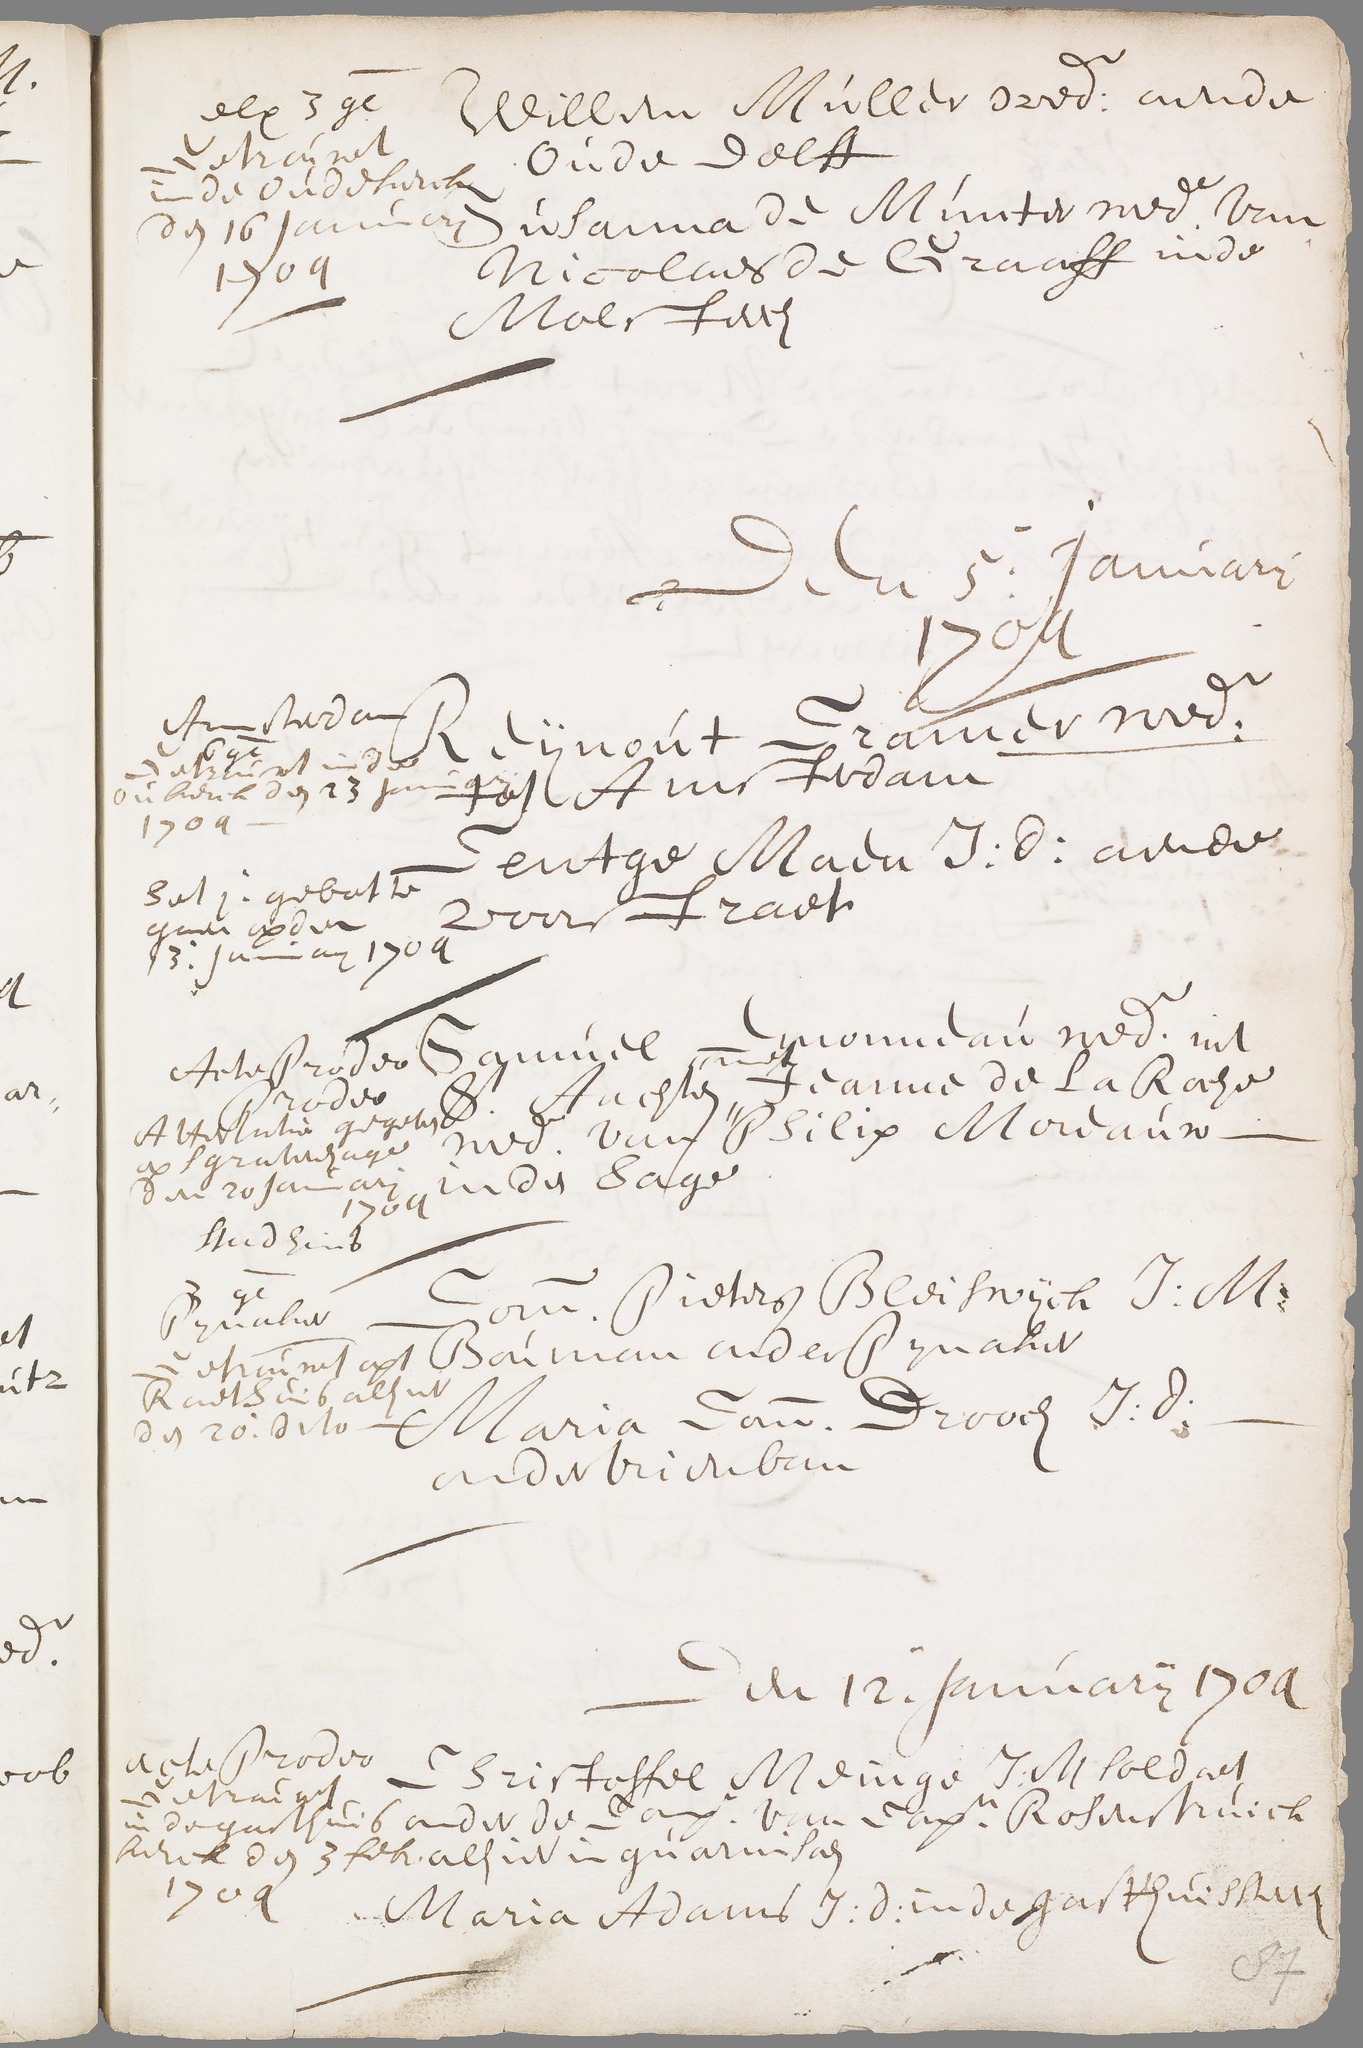 elx 3 ge
Getrouwt
in de oude kerck
den 16 January
1704
Willem Muller wedr: aende
Oude Delft
Susanna de Munter wede. van
Nicolaes de Graaff inde
Molsteech
Den 5: January
1704
Amsterdam
6 ge
Getrouwt inde
ou kerck den 23 January
1704
Reijnout Cramer wedr:
tot Amsterdam
Sal j: gebot te
gaen op den
13: January 1704
Tentge Maen J: d: aende
voorstraet
Acte Prodeo
Prodeo
Attestatie gegeven
op Sgravenhage
den 20 January
1704
Samuel wedr. int
St. Aechten, met Jeanne de La Roche
wede. van Philip Moreauw
inden Hage
Stadhuis
3 ge
Pynaker
Getrouwt opt
Raethuis alhier
den 20: dito
Corn. Pieters Bleiswijck J: M:
Bouman onder Pynaker
Maria Corn. Drooch J: d:
onder brienban
Den 12: January 1704
acte Prodeo
Getrouwt
in de gasthuis
kerck den 3 feb.
1704
Christoffel Meinge J: M soldaet
onder de Comp: van Capn: Rosenstruick
alhier in guarnisoen
Maria Adams J: d: inde gasthuissteech
87